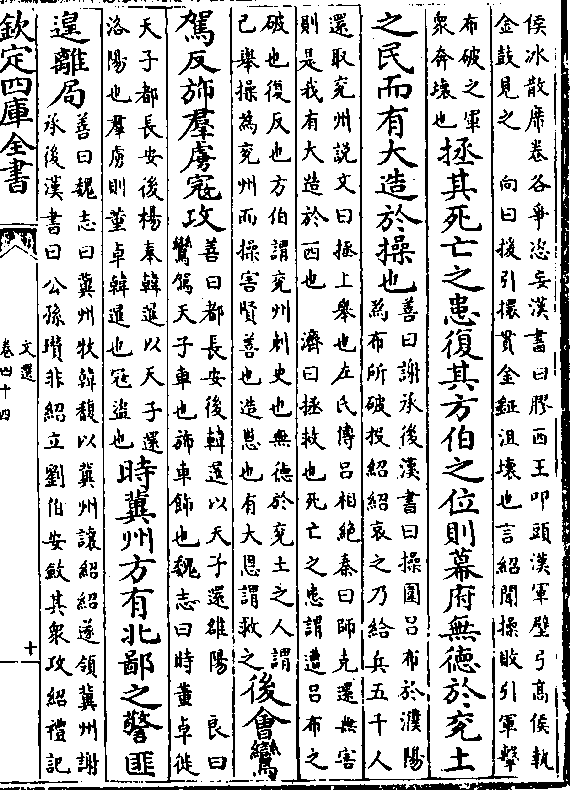 侯冰散席卷各爭恣妄漢書曰膠西王叩頭漢軍壁弓高侯執
金鼓見之 向曰援引擐貫金鉦沮壞也言紹聞操敗引軍擊
布破之軍
衆奔壞也
拯其死亡之患復其方伯之位則幕府無德於兖土
之民而有大造於操也
善曰謝承後漢書曰操圍吕布於濮陽
為布所破投紹紹哀之乃給兵五千人
還取兖州説文曰拯上舉也左氏傳吕相絶秦曰師克還無害
則是我有大造於西也 濟曰拯救也死亡之患謂遭吕布之
破也復反也方伯謂兖州刺史也無德於兖土之人謂
己舉操為兖州而操害賢善也造恩也有大恩謂救之
後會鸞
駕反斾羣虜寇攻
善曰都長安後韓暹以天子還雒陽 良曰
鸞駕天子車也斾車飾也魏志曰時董卓徙
天子都長安後楊奉韓暹以天子還
洛陽也羣虜則董卓韓暹也寇盜也
時冀州方有北鄙之警匪
遑離局
善曰魏志曰冀州牧韓馥以冀州讓紹紹遂領冀州謝
承後漢書曰公孫瓚非紹立劉伯安斂其衆攻紹禮記
欽定四庫全書
文選
卷四十四
十